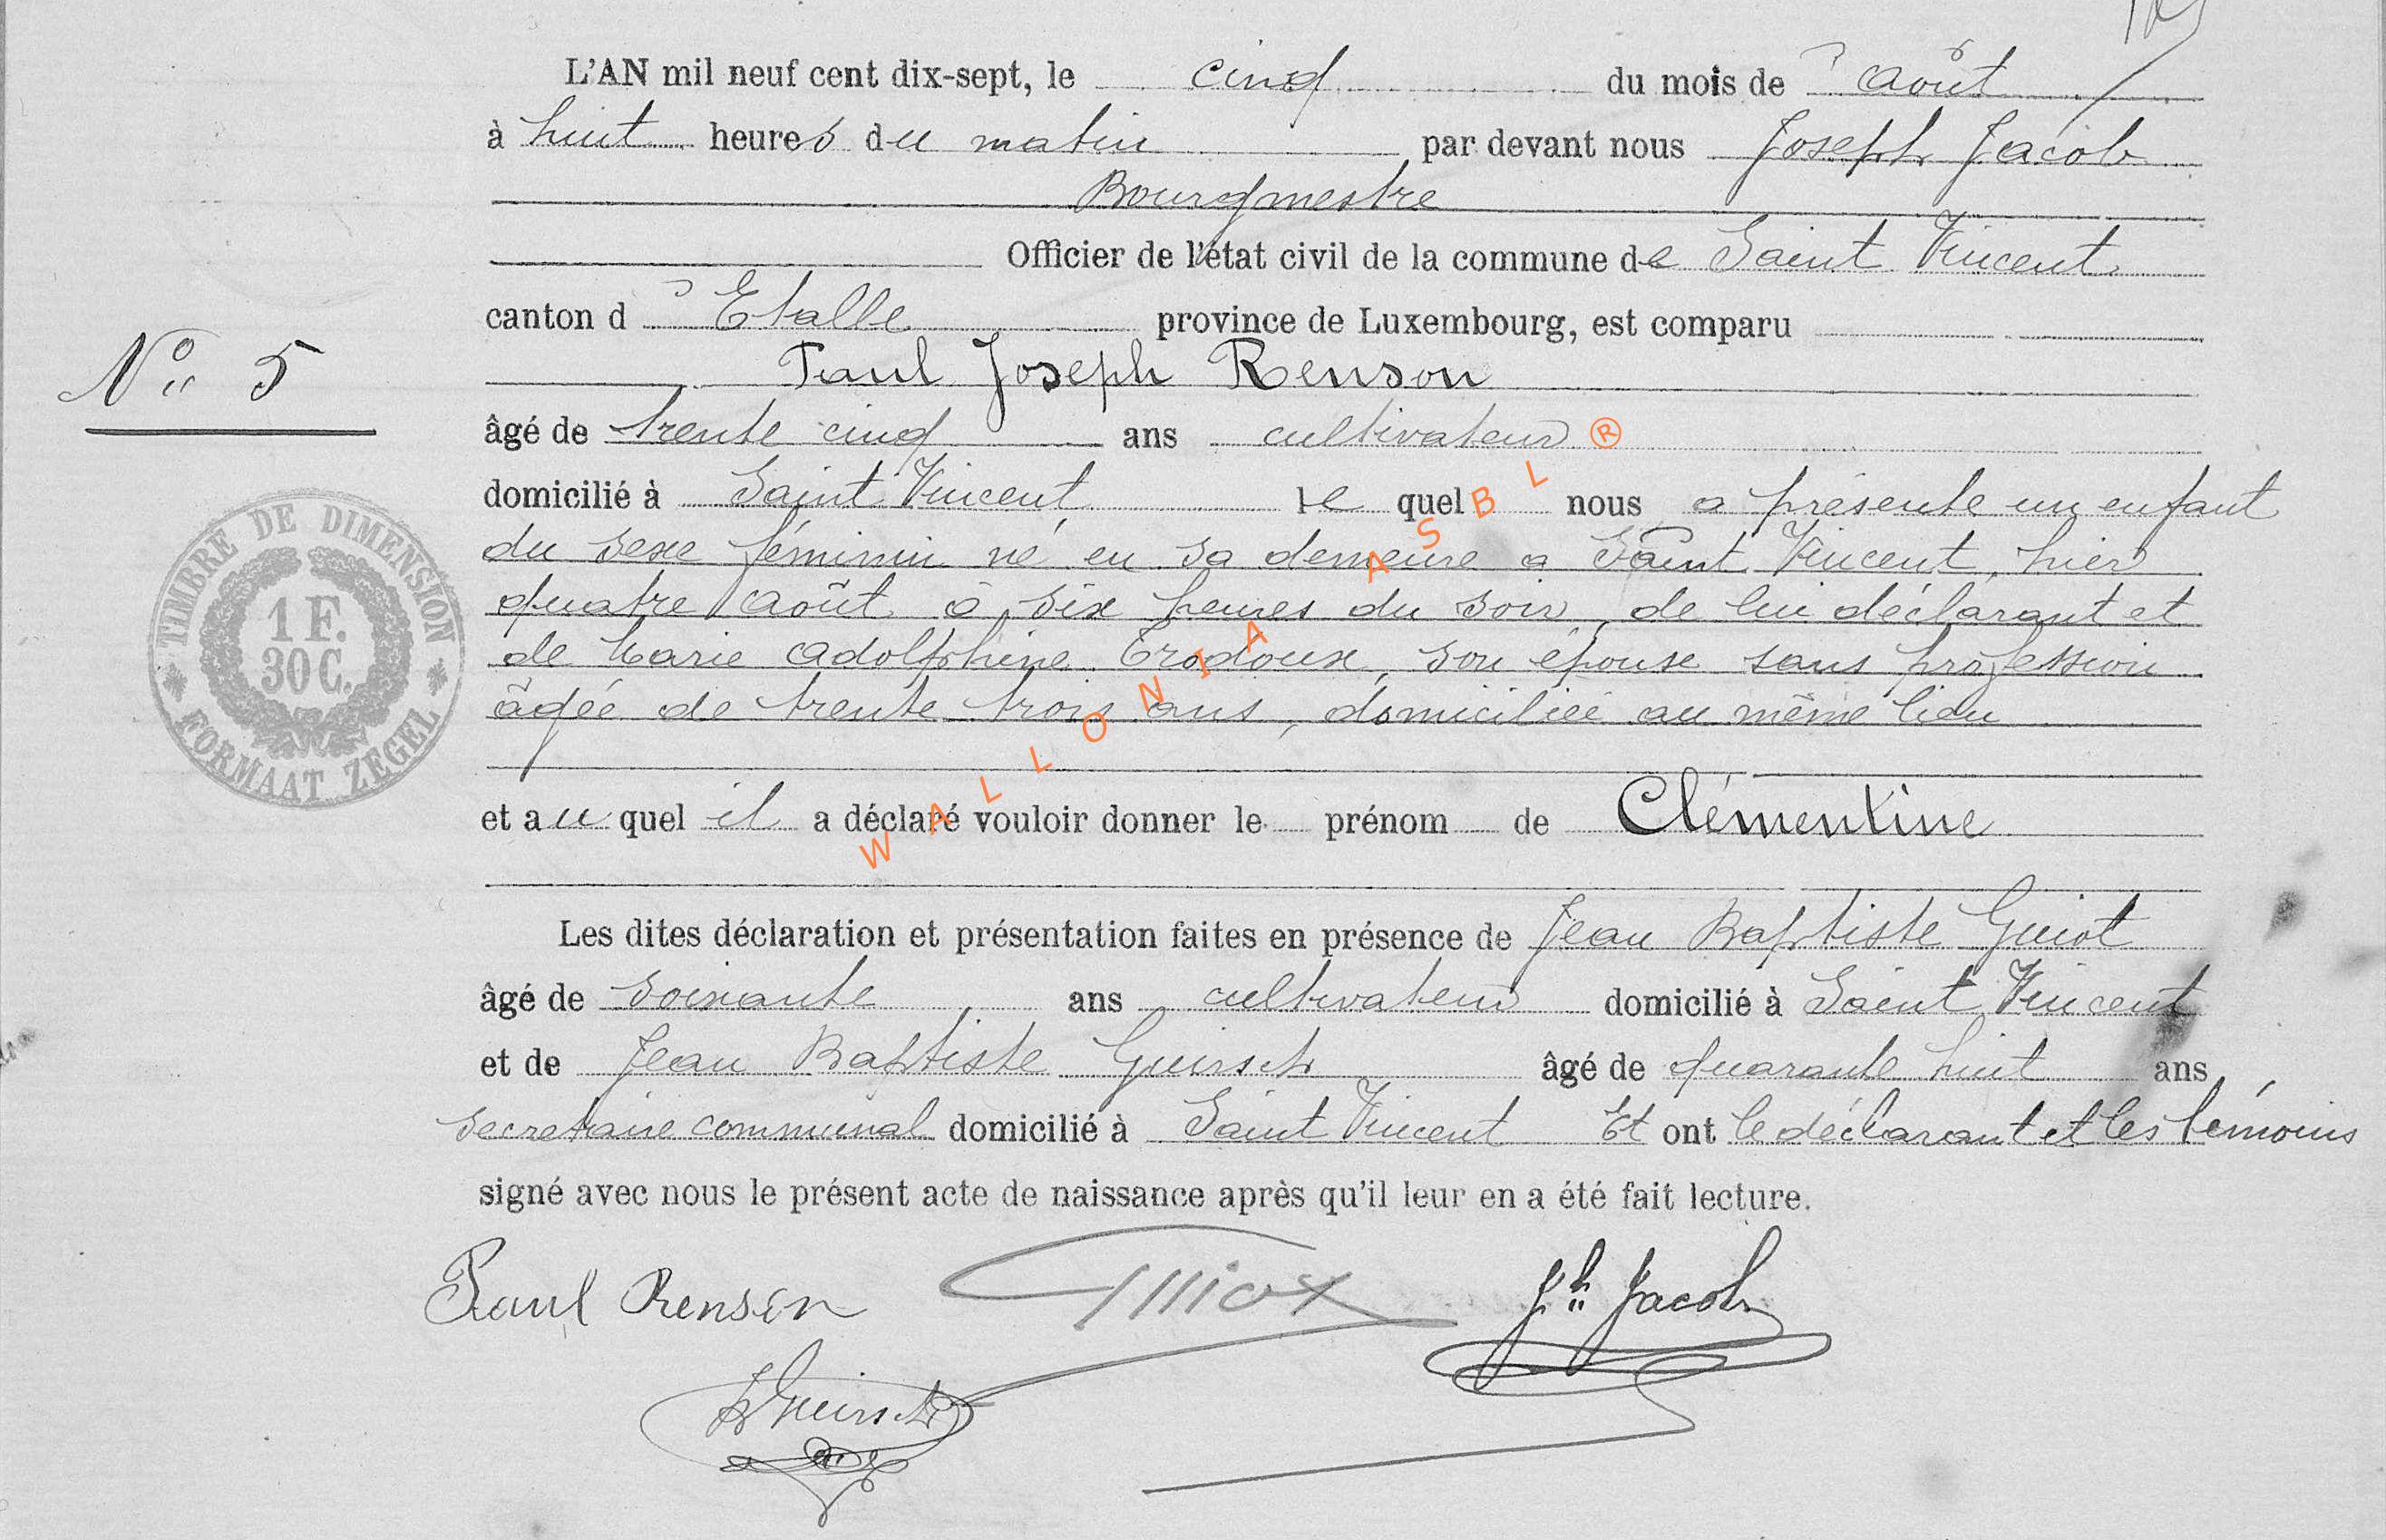 L'AN mil neuf cent dix-sept, le cinq du mois de août
à huit heures du matin par devant nous Joseph Jacob
Bourgmestre
Officier de l'état civil de la commune de Saint Vincent
canton d' Etalle province de Luxembourg, est comparu
N° 5
Paul Joseph Renson
âgé de trente cinq ans cultivateur ®
domicilié à Saint Vincent le quel nous a présenté un enfant
du sexe féminin né en sa demeure a Saint Vincent, hier
quatre août à six heures du soir, de lui déclarant et
de Marie Adolphine Trodoux, son épouse sans profession
âgée de trente trois ans, domiciliée au même lieu
TIMBRE DE DIMENSION
1 F.
30 C.
FORMAAT ZEGEL
WALLONIA ASBL
et au quel il a déclaré vouloir donner le prénom de Clémentine
Les dites déclaration et présentation faites en présence de Jean Baptiste Guiot
âgé de soixante ans cultivateur domicilié à Saint Vincent
et de Jean Baptiste Guirsch âgé de quarante huit ans
secretaire communal domicilié à Saint Vincent Et ont le déclarant et les témoins
signé avec nous le présent acte de naissance après qu'il leur en a été fait lecture.
Paul Renson Guiot Jh Jacob
Guirsch